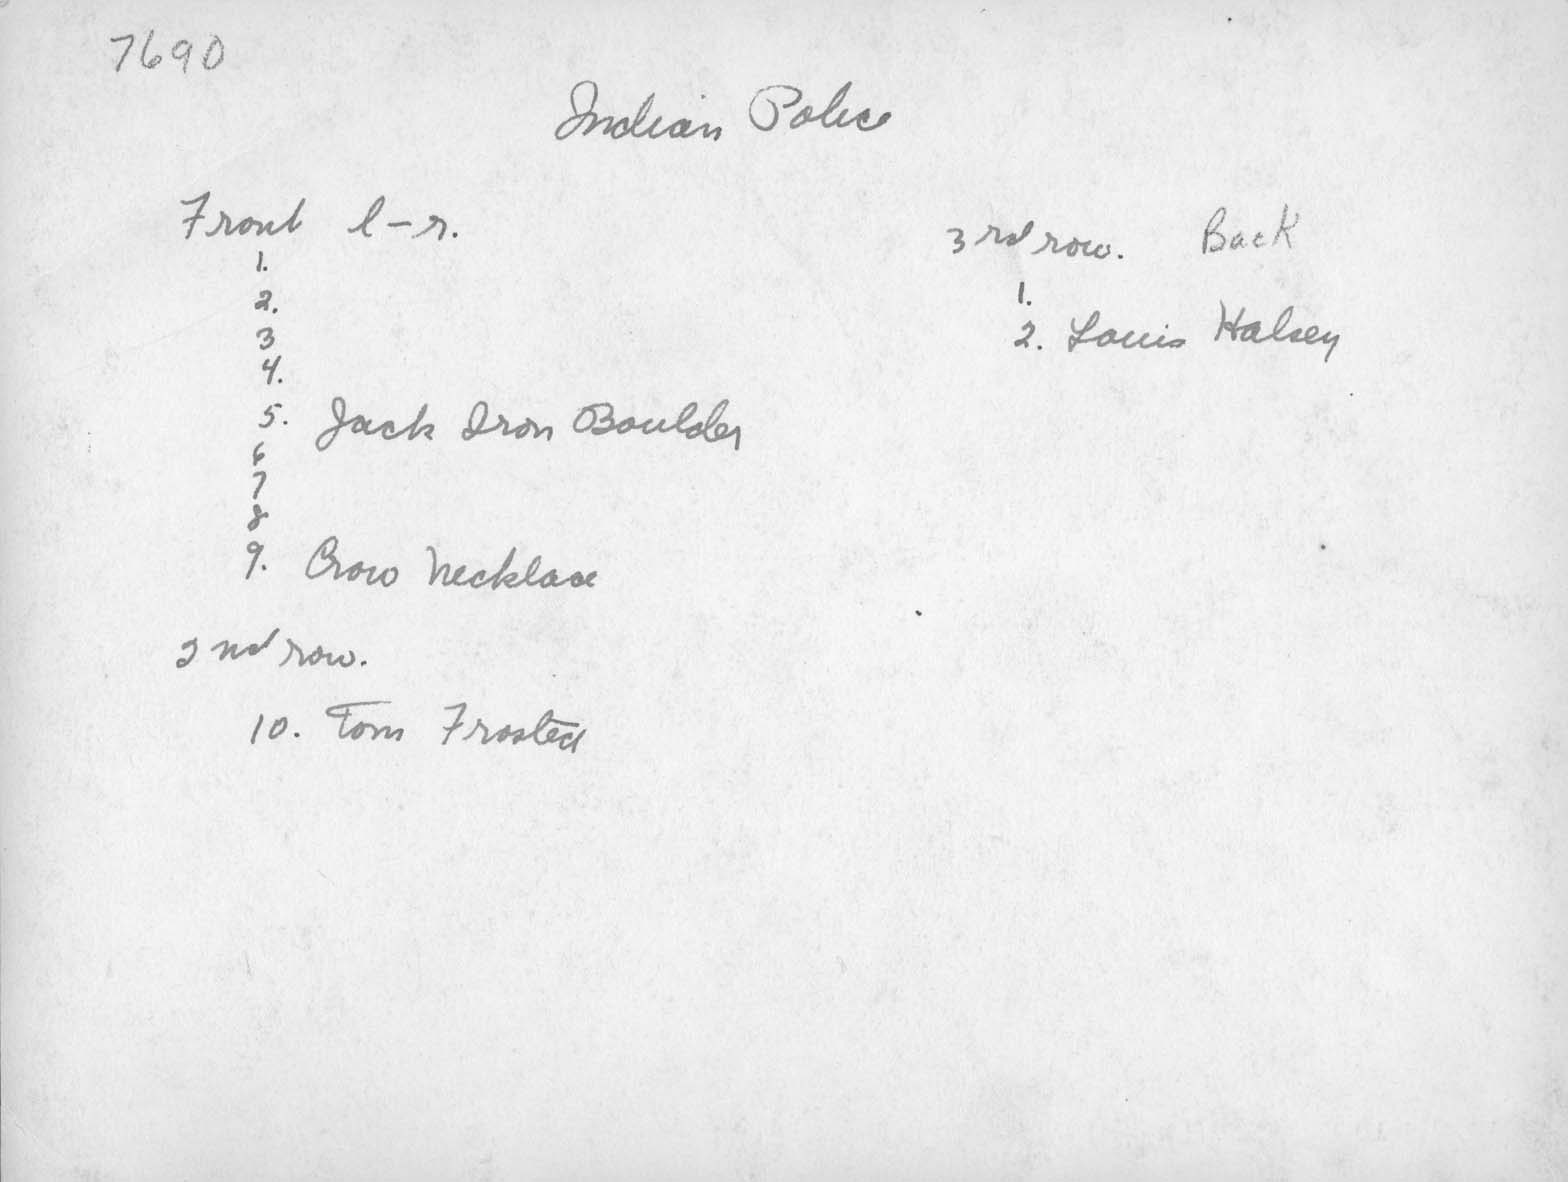 7690
Indian Police
Front l-r.
1.
2.
3
4.
5. Jack Iron Boulder
6
7
8
9. Crow Necklace
2nd row.
10. Tom Frosted
3rd row. Back
1.
2. Louis Halsey